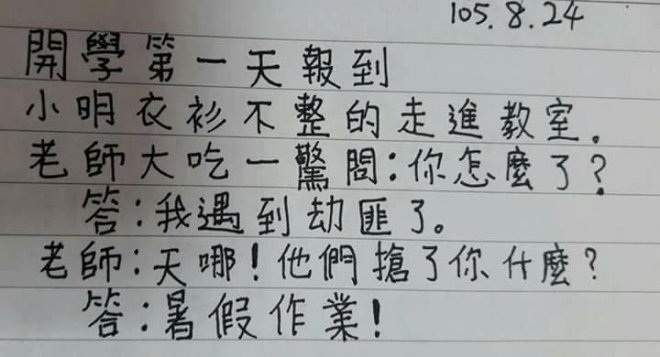 105.8.24
開學第一天報到
小明衣衫不整的走進教室。
老師大吃一驚問:你怎麼了?
答:我遇到劫匪了。
老師:天哪!他們搶了你什麼?
答:暑假作業!